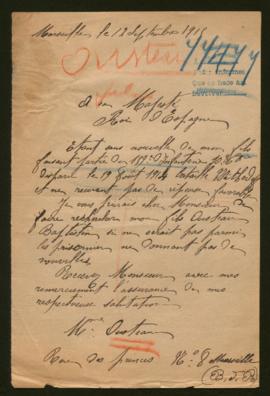 Marseille le 12 Septembre 1915
Oustrain
44477
A sa Majesté
Roi d'Espagne
Etant sans nouvelle de mon fils
faisant partie de Infanterie
Disparu le 19 Août 1914
et ne recevant pas de réponse favorable
Je vous prierais cher Monsieur de
faire rechercher mon fils
Baptistin si ne serait pas parmi
les prisonniers ne donnant pas de
nouvelles
Recevez Monsieur avec mes
remerciement l'assurance de mes
respectueuse salutation
Mme
Rue des princes No 8 Marseille
(B. d. R)